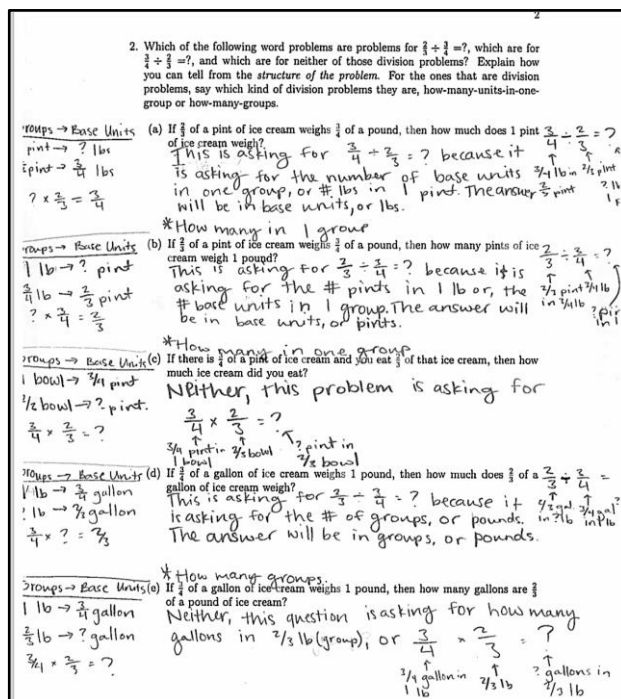 2
2. Which of the following word problems are problems for 2/3 ÷ 3/4 =?, which are for
3/4 ÷ 2/3 =?, and which are for neither of those division problems? Explain how
you can tell from the structure of the problem. For the ones that are division
problems, say which kind of division problems they are, how-many-units-in-one-
group or how-many-groups.
roups → Base Units
pint → ? lbs
pint → 3/4 lbs
? × 2/3 = 3/4
(a) If 2/3 of a pint of ice cream weighs 3/4 of a pound, then how much does 1 pint
of ice cream weigh?
This is asking for 3/4 ÷ 2/3 = ? because it
is asking for the number of base units
in one group, or # lbs in 1 pint. The answer
will be in base units, or lbs.
3/4 ÷ 2/3 = ?
3/4 lb in 2/3 pint
*How many in 1 group
roups → Base Units
1 lb → ? pint
3/4 lb → 2/3 pint
? × 3/4 = 2/3
(b) If 2/3 of a pint of ice cream weighs 3/4 of a pound, then how many pints of ice
cream weigh 1 pound?
This is asking for 2/3 ÷ 3/4 = ? because it is
asking for the # pints in 1 lb or, the
# base units in 1 group. The answer will
be in base units, or pints.
2/3 ÷ 3/4 = ?
2/3 pint 3/4 lb
in 3/4 lb
*How many in one group
roups → Base Units
1 bowl → 3/4 pint
2/3 bowl → ? pint.
3/4 × 2/3 = ?
(c) If there is 3/4 of a pint of ice cream and you eat 2/3 of that ice cream, then how
much ice cream did you eat?
Neither, this problem is asking for
3/4 × 2/3 = ?
3/4 pint in 2/3 bowl ? pint in
1 bowl 2/3 bowl
roups → Base Units
1 lb → 3/4 gallon
? lb → 2/3 gallon
3/4 × ? = 2/3
(d) If 3/4 of a gallon of ice cream weighs 1 pound, then how much does 2/3 of a
gallon of ice cream weigh?
This is asking for 2/3 ÷ 3/4 = ? because it
is asking for the # of groups, or pounds.
The answer will be in groups, or pounds.
2/3 ÷ 3/4 =
2/3 gal. 3/4 gal
in ? lb in 1 lb
*How many groups
Groups → Base Units
1 lb → 3/4 gallon
2/3 lb → ? gallon
3/4 × 2/3 = ?
(e) If 3/4 of a gallon of ice cream weighs 1 pound, then how many gallons are 2/3
of a pound of ice cream?
Neither, this question is asking for how many
gallons in 2/3 lb (group), or 3/4 × 2/3 = ?
3/4 gallon in 2/3 lb ? gallons in
1 lb 2/3 lb